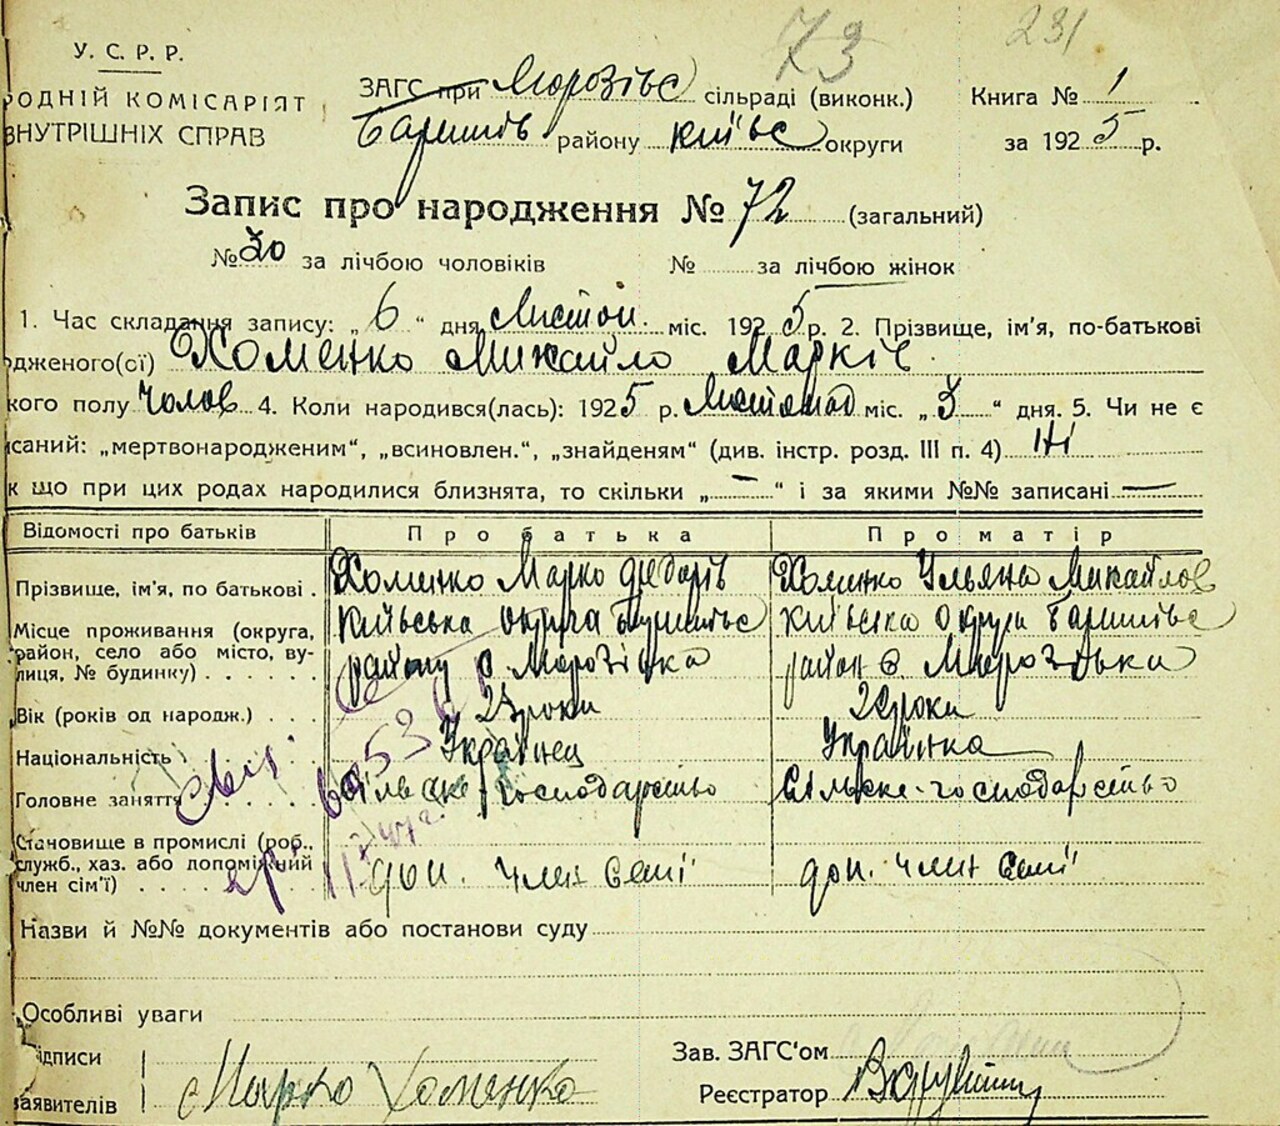 73 231
У. С. Р. Р.
РОДНІЙ КОМІСАРІЯТ
ВНУТРІШНІХ СПРАВ
ЗАГС при Морозівс сільраді (виконк.)
Баришів району київс округи
Книга № 1
за 1925 р.
Запис про народження № 72 (загальний)
№ 30 за лічбою чоловіків № за лічбою жінок
1. Час складання запису: „ 6 “ дня Листоп. міс. 1925 р. 2. Прізвище, ім’я, по-батькові
одженого(ої) Хоменко Михайло Марків
кого полу Чолов 4. Коли народився(лась): 1925 р. Листопад міс. „ 3 “ дня. 5. Чи не є
исаний: „мертвонародженим“, „всиновлен.“, „знайденям“ (див. інстр. розд. III п. 4) Ні
к що при цих родах народилися близнята, то скільки „ — “ і за якими №№ записані —
Відомості про батьків Про батька Про матір
Прізвище, ім’я, по батькові . Хоменко Марко Федорів Хоменко Ульяна Михайлов
Місце проживання (округа, Київська округа Баришівс київська округи Баришівс
район, село або місто, ву- району с. Морозівка район с. Морозівка
лиця, № будинку) . . . . . .
Вік (років од народж.) . . . 23 роки 22 роки
Національність Українец Українка
Головне заняття . . . . Сільське-господарство Сільске-господарство
Становище в промислі (роб.,
служб., хаз. або допоміжний доп. член семї доп. член семї
член сім’ї) . . . .
Назви й №№ документів або постанови суду
Особливі уваги
ідписи
заявителів Марко Хоменко
Зав. ЗАГС’ом
Реєстратор